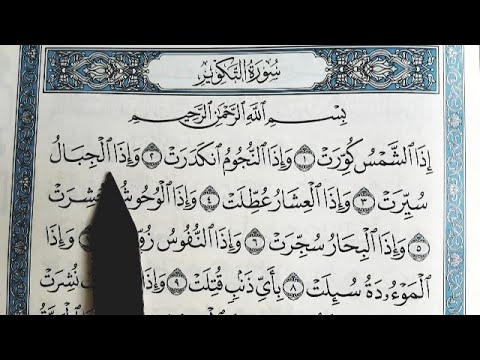 سُورَةُ التَّكْوِيرِ
بِسْمِ اللَّهِ الرَّحْمَٰنِ الرَّحِيمِ
إِذَا الشَّمْسُ كُوِّرَتْ ١ وَإِذَا النُّجُومُ انْكَدَرَتْ ٢ وَإِذَا الْجِبَالُ
سُيِّرَتْ ٣ وَإِذَا الْعِشَارُ عُطِّلَتْ ٤ وَإِذَا الْوُحُوشُ
٥ وَإِذَا الْبِحَارُ سُجِّرَتْ ٦ وَإِذَا النُّفُوسُ وَإِذَا
الْمَوْءُودَةُ سُئِلَتْ ٨ بِأَيِّ ذَنْبٍ قُتِلَتْ ٩ وَإِذَا نُشِرَتْ